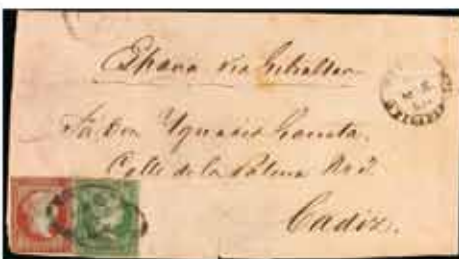 España via Gibraltar
Sr. Don Ygnacio
Calle de la Palma No 3.
Cadiz.